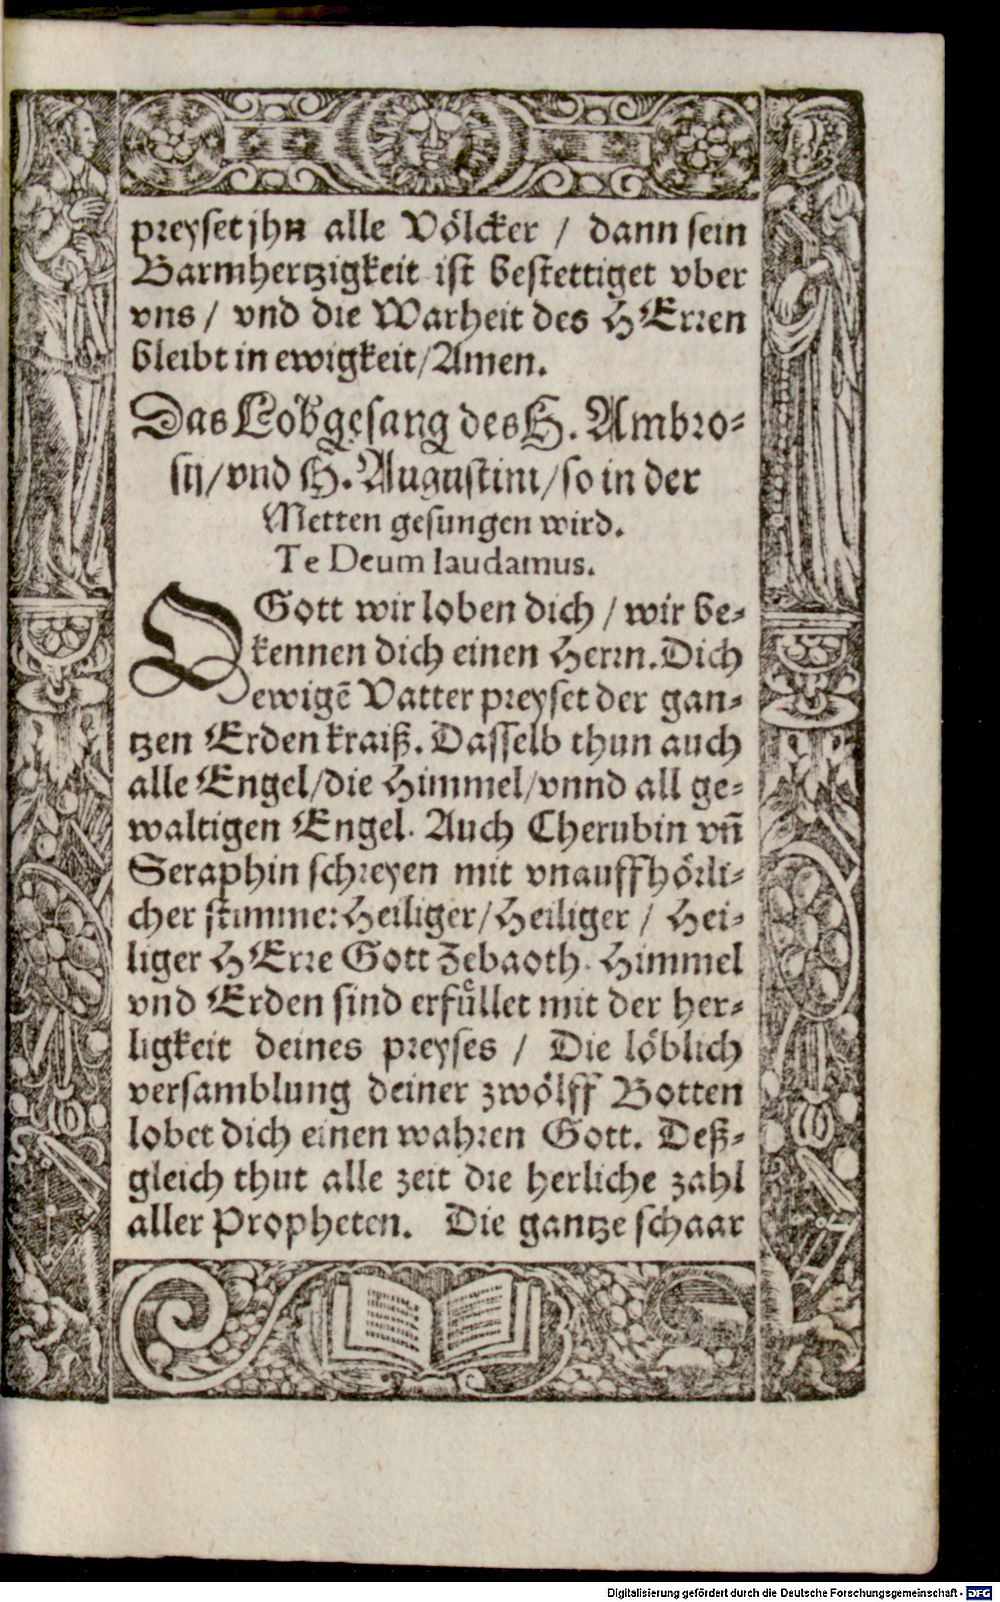 preyset jhn alle Völcker / dann sein
Barmhertzigkeit ist bestettiget vber
vns / vnd die Warheit des HErren
bleibt in ewigkeit / Amen.
Das Lobgesang des H. Ambro-
sij / vnd H. Augustini / so in der
Metten gesungen wird.
Te Deum laudamus.
O Gott wir loben dich / wir be-
kennen dich einen Herrn. Dich
ewigē Vatter preyset der gan-
tzen Erden kraiß. Dasselb thun auch
alle Engel / die Himmel / vnnd all ge-
waltigen Engel. Auch Cherubin vñ
Seraphin schreyen mit vnauffhörli-
cher stimme: Heiliger / Heiliger / Hei-
liger HErre Gott Zebaoth. Himmel
vnd Erden sind erfuͤllet mit der her-
ligkeit deines preyses / Die löblich
versamblung deiner zwölff Botten
lobet dich einen wahren Gott. Deß-
gleich thut alle zeit die herliche zahl
aller Propheten. Die gantze schaar
Digitalisierung gefördert durch die Deutsche Forschungsgemeinschaft - DFG